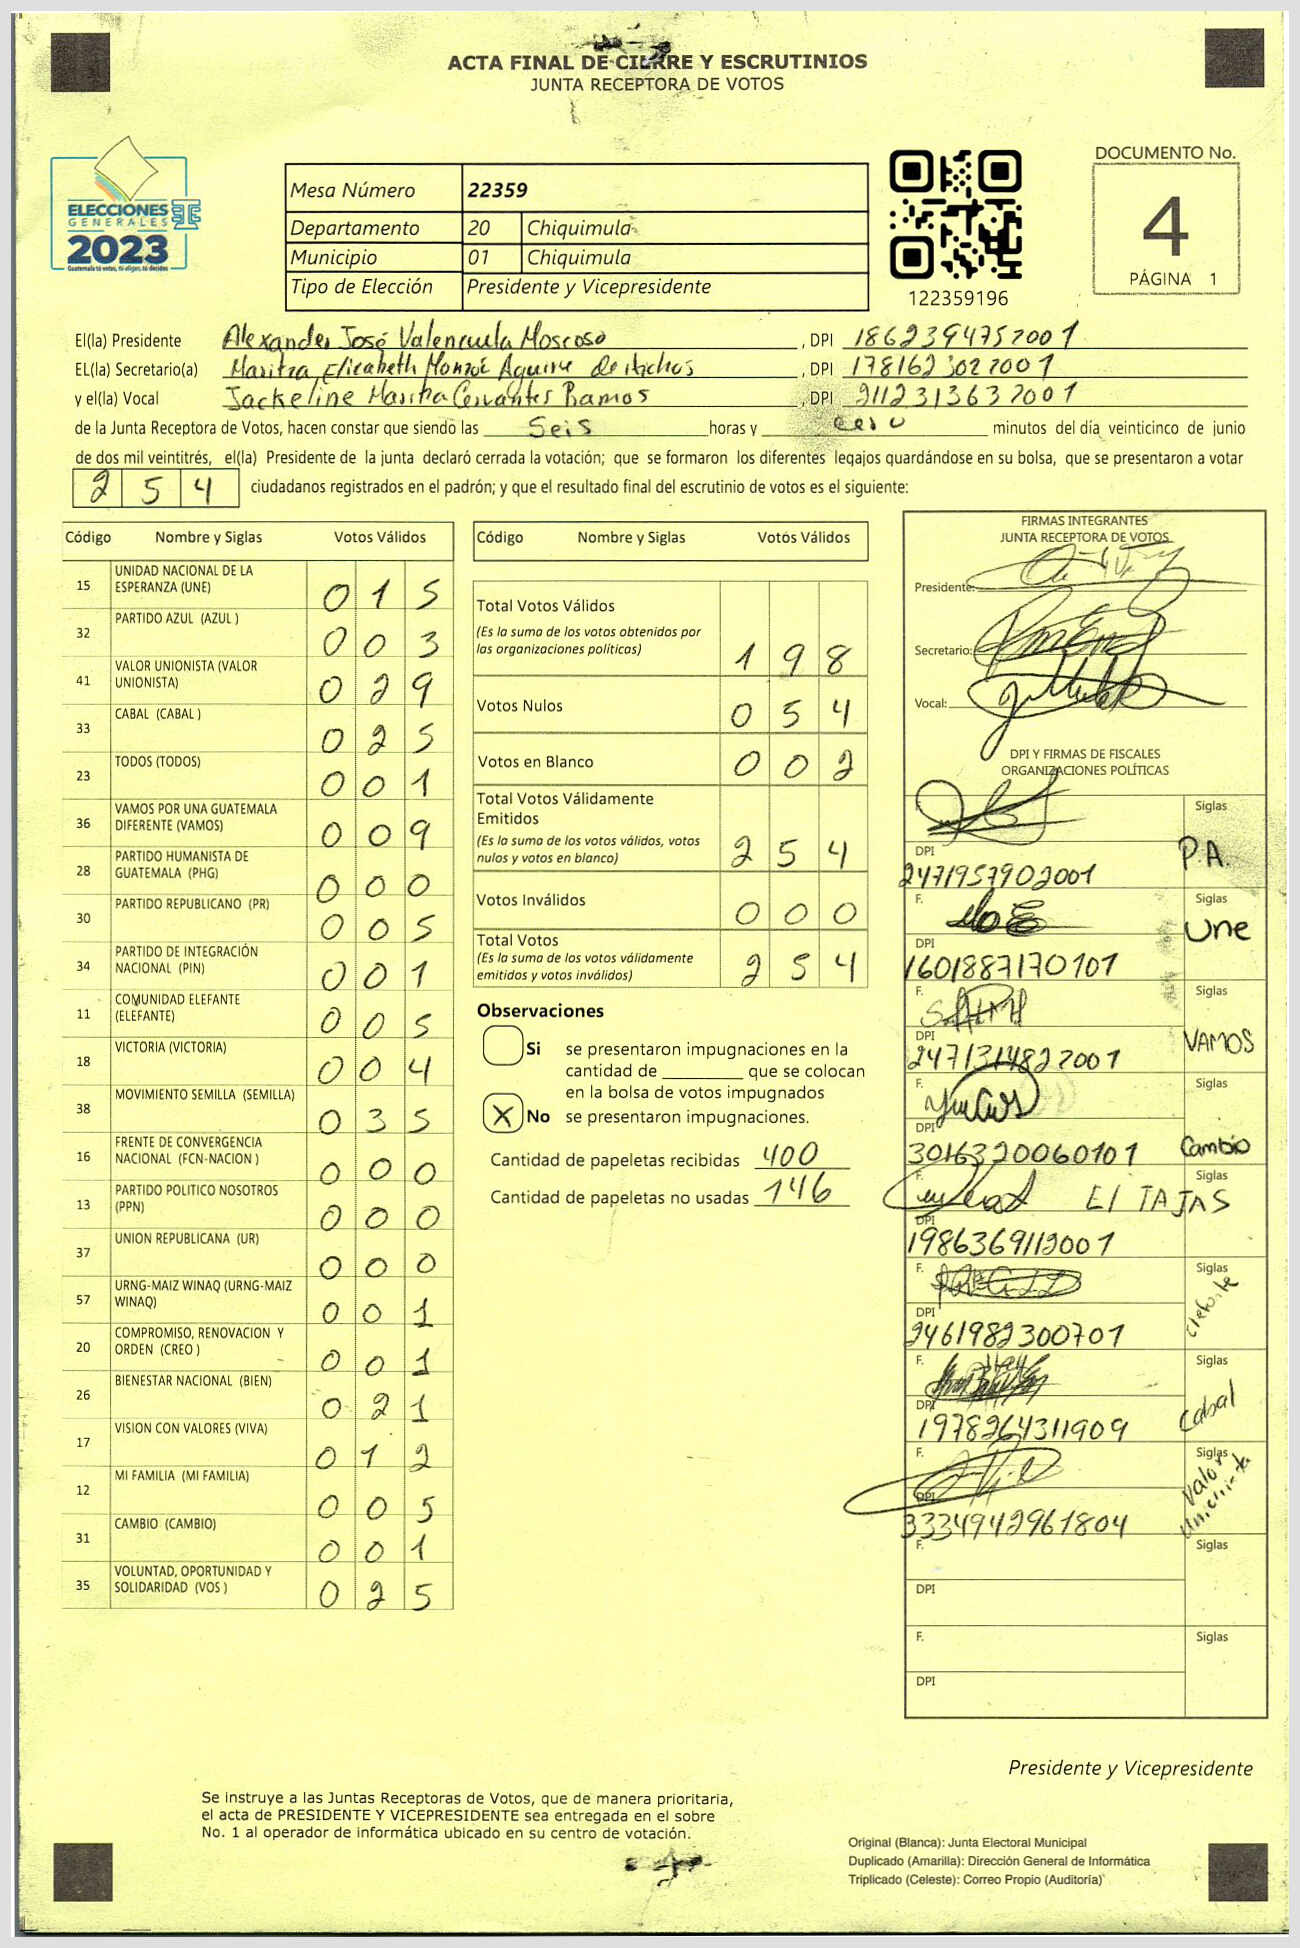 ACTA FINAL DE CIERRE Y ESCRUTINIOS
JUNTA RECEPTORA DE VOTOS
ELECCIONES
GENERALES
2023
Guatemala tú votas, tú eliges, tú decides
Mesa Número 22359
Departamento 20 Chiquimula
Municipio 01 Chiquimula
Tipo de Elección Presidente y Vicepresidente
122359196
DOCUMENTO No.
4
PÁGINA 1
El(la) Presidente Alexander José Valenzuela Moscoso, DPI 1862394752001
EL(la) Secretario(a) Maritza Elizabeth Monroé Aguirre, DPI 1781623022001
y el(la) Vocal Jackeline Maritza Cervantes Ramos, DPI 2112313632001
de la Junta Receptora de Votos, hacen constar que siendo las Seis horas y cero minutos del día veinticinco de junio
de dos mil veintitrés, el(la) Presidente de la junta declaró cerrada la votación; que se formaron los diferentes legajos guardándose en su bolsa, que se presentaron a votar
254 ciudadanos registrados en el padrón; y que el resultado final del escrutinio de votos es el siguiente:
Código Nombre y Siglas Votos Válidos
15 UNIDAD NACIONAL DE LA ESPERANZA (UNE) 015
32 PARTIDO AZUL (AZUL ) 003
41 VALOR UNIONISTA (VALOR UNIONISTA) 029
33 CABAL (CABAL ) 025
23 TODOS (TODOS) 001
36 VAMOS POR UNA GUATEMALA DIFERENTE (VAMOS) 009
28 PARTIDO HUMANISTA DE GUATEMALA (PHG) 000
30 PARTIDO REPUBLICANO (PR) 005
34 PARTIDO DE INTEGRACIÓN NACIONAL (PIN) 001
11 COMUNIDAD ELEFANTE (ELEFANTE) 005
18 VICTORIA (VICTORIA) 004
38 MOVIMIENTO SEMILLA (SEMILLA) 035
16 FRENTE DE CONVERGENCIA NACIONAL (FCN-NACION ) 000
13 PARTIDO POLITICO NOSOTROS (PPN) 000
37 UNION REPUBLICANA (UR) 000
57 URNG-MAIZ WINAQ (URNG-MAIZ WINAQ) 001
20 COMPROMISO, RENOVACION Y ORDEN (CREO ) 001
26 BIENESTAR NACIONAL (BIEN) 021
17 VISION CON VALORES (VIVA) 012
12 MI FAMILIA (MI FAMILIA) 005
31 CAMBIO (CAMBIO) 001
35 VOLUNTAD, OPORTUNIDAD Y SOLIDARIDAD (VOS ) 025
Código Nombre y Siglas Votos Válidos
Total Votos Válidos
(Es la suma de los votos obtenidos por las organizaciones políticas) 198
Votos Nulos 054
Votos en Blanco 002
Total Votos Válidamente Emitidos
(Es la suma de los votos válidos, votos nulos y votos en blanco) 254
Votos Inválidos 000
Total Votos
(Es la suma de los votos válidamente emitidos y votos inválidos) 254
Observaciones
Si se presentaron impugnaciones en la
cantidad de ________ que se colocan
en la bolsa de votos impugnados
X No se presentaron impugnaciones.
Cantidad de papeletas recibidas 400
Cantidad de papeletas no usadas 146
FIRMAS INTEGRANTES
JUNTA RECEPTORA DE VOTOS
Presidente:
Secretario:
Vocal:
DPI Y FIRMAS DE FISCALES
ORGANIZACIONES POLÍTICAS
F. Siglas P.A.
DPI 2471957902001
F. Siglas Une
DPI 1601887170101
F. Siglas VAMOS
DPI 2471314822001
F. Siglas Cambio
DPI 3016320060101
F. Siglas El TAJAS
DPI 1986369112001
F. Siglas
DPI 2461982300701
F. Siglas Cabal
DPI 1978264311909
F. Siglas Valor Unionista
DPI 3334942961804
F. Siglas
DPI
F. Siglas
DPI
Presidente y Vicepresidente
Se instruye a las Juntas Receptoras de Votos, que de manera prioritaria,
el acta de PRESIDENTE Y VICEPRESIDENTE sea entregada en el sobre
No. 1 al operador de informática ubicado en su centro de votación.
Original (Blanca): Junta Electoral Municipal
Duplicado (Amarilla): Dirección General de Informática
Triplicado (Celeste): Correo Propio (Auditoría)